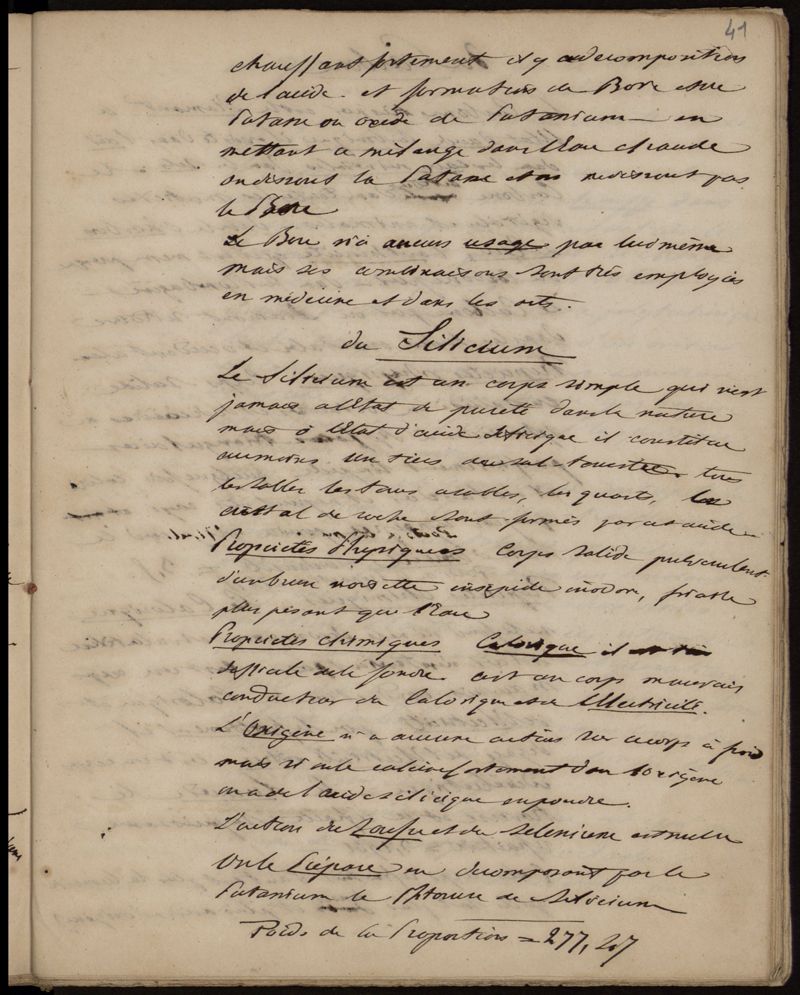 41
chauffant fortement il y a decomposition
de l'acide. et formation du Bore et de
Potasse ou oxide de Potassium — en
mettant ce mélange dans l'Eau chaude
on dissout la Potasse et on ne dissout pas
le Bore
Le Bore n'a aucun usage par lui même
mais ses combinaisons sont très employés
en médecine et dans les arts.
du Silicium
Le Silicium est un corps simple qui n'est
jamais à l'Etat de pureté dans la nature
mais à l'Etat d'acide silicique il constitue
au moins un tiers du sol terrestre.
les sables les terres arables, les quartz, le
cristal de roche sont formés par cet acide.
Propriétés Physiques Corps solide pulverulent
d'un brun noisette insipide inodore, friable
plus pesant que l'Eau
Propriétés chimiques Calorique il est très
difficile de le fondre. c'est un corps mauvais
conducteur du Calorique et de l'Electricité.
L'Oxigène n'a aucune action sur ce corps à froid
mais si on le calcine fortement dans l'oxigène
on a de l'acide silicique en poudre.
L'action du Soufre et du selenium est nulle
On le Prépare en decomposant par le
Potassium le Phtorure de Silicium
Poids de la Proportion = 277,207